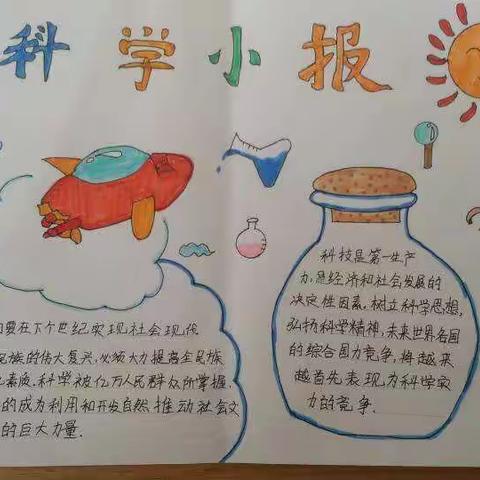 科学小报
要在下个世纪实现社会现代
民族的伟大复兴,必须大力提高全民族
素质,科学被亿万人民群众所掌握,
的成为利用和开发自然,推动社会文
的巨大力量.
科技是第一生产
力,是经济和社会发展的
决定性因素,树立科学思想,
弘扬科学精神,未来世界各国
的综合国力竞争,将越来
越首先表现为科学实
力的竞争.